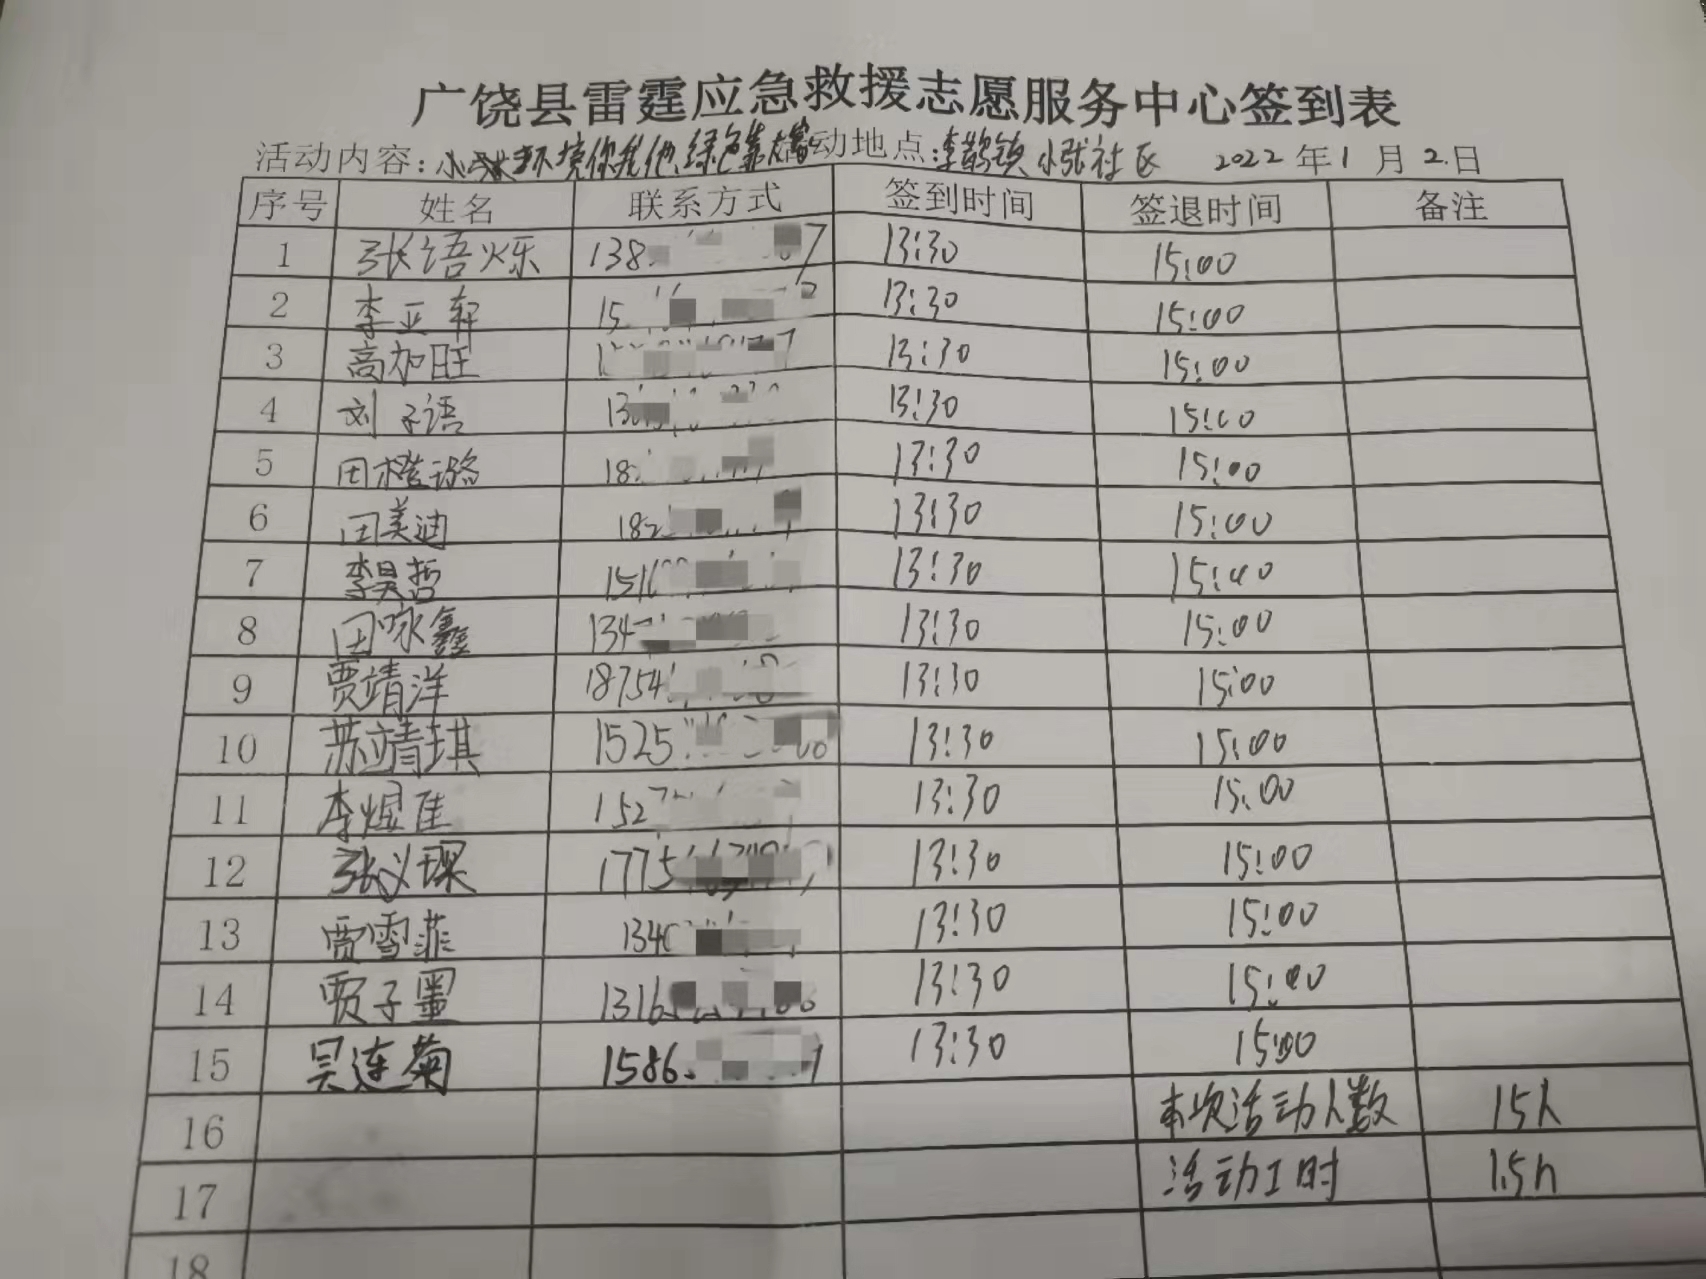 广饶县雷霆应急救援志愿服务中心签到表
活动内容：环境你我他，绿色靠大家 活动地点：李鹊镇小张社区 2022年1月2日
序号 姓名 联系方式 签到时间 签退时间 备注
1 张语烁 138 7 13:30 15:00
2 李亚轩 15 13:30 15:00
3 高加旺 1 13:30 15:00
4 刘子语 13 13:30 15:00
5 田橙璐 18 13:30 15:00
6 田美迪 182 13:30 15:00
7 李昊哲 151 13:30 15:00
8 田咏鑫 134 13:30 15:00
9 贾靖洋 18754 13:30 15:00
10 苏靖琪 1525 13:30 15:00
11 李煜佳 152 13:30 15:00
12 张义琛 1775 13:30 15:00
13 贾雪菲 134 13:30 15:00
14 贾子墨 1316 13:30 15:00
15 吴连菊 1586 1 13:30 15:00
16 本次活动人数 15人
17 活动工时 1.5h
18